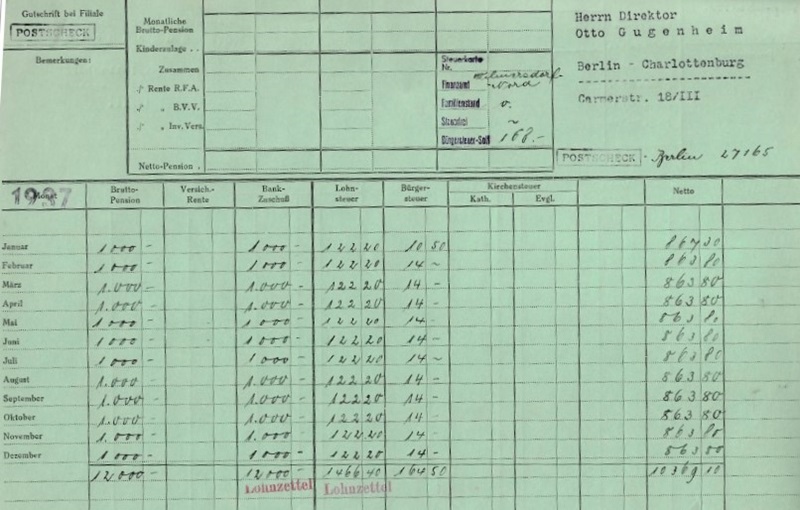 Gutschrift bei Filiale
POSTSCHECK
Bemerkungen:
Monatliche
Brutto-Pension
Kinderzulage . .
Zusammen
./. Rente R.F.A.
./. „ B.V.V.
./. „ Inv. Vers.
Netto-Pension .
Steuerkarte
Nr.
Finanzamt Wilmersdorf-
Nord
Familienstand v.
Steuerfrei ~
Bürgersteuer-Soll 168.-
Herrn Direktor
Otto Gugenheim
Berlin - Charlottenburg
Carmerstr. 18/III
POSTSCHECK - Berlin 27165
1937 Brutto-Pension Versich.-Rente Bank-Zuschuß Lohn-steuer Bürger-steuer Kirchensteuer Kath. Evgl. Netto
Januar 1000 - 1000 - 122 20 10 50 867 30
Februar 1000 - 1000 - 122 20 14 ~ 863 80
März 1.000 - 1.000 - 122 20 14 - 863 80
April 1.000 - 1.000 - 122 20 14 - 863 80
Mai 1000 - 1000 - 122 20 14 - 863 80
Juni 1000 - 1000 - 122 20 14 - 863 80
Juli 1000 - 1000 - 122 20 14 ~ 863 80
August 1.000 - 1.000 - 122 20 14 - 863 80
September 1.000 - 1.000 - 122 20 14 - 863 80
Oktober 1.000 - 1.000 - 122 20 14 - 863 80
November 1.000 - 1.000 - 122 20 14 - 863 80
Dezember 1000 - 1000 - 122 20 14 - 863 80
12000 - 12000 - 1466 40 164 50 10369 10
Lohnzettel Lohnzettel